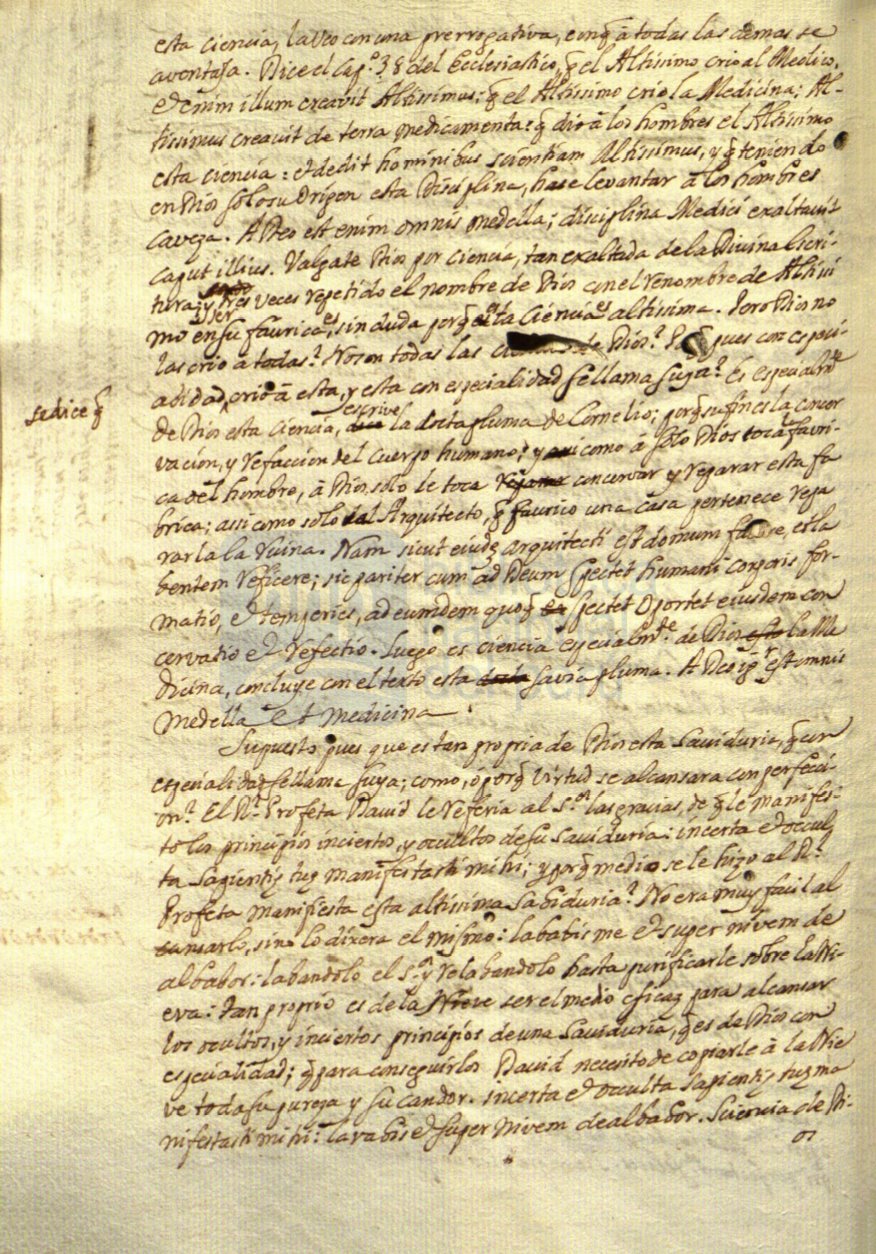 esta ciencia, la veo con una prerrogativa, con q̃ à todas las demas se
aventaja. Dice el Cap.º 38 del Ecclesiastico, q̃ el Altissimo crio al Medico,
etenim illum creavit Altissimus; q̃ el Altissimo crio la Medicina; Al-
tissimus creavit de terra medicamenta: q̃ dio à los hombres el Altissimo
esta ciencia: et dedit hominibus scientiam Altissimus, y q̃ teniendo
en Dios solo su Origen esta Disciplina, hase levantar à los hombres
caveza. A Deo est enim omnis medella; disciplina Medici exaltavit
caput illius. Valgate Dios por ciencia, tan exaltada de la Divina Escri-
tura; y tres veces repetido el nombre de Dios con el renombre de Altissi
mo en su faurica, sin duda porq̃ es esta Ciencia altissima. Pero Dios no
las crio à todas? No son todas las de Dios? q̃ pues con especi-
alidad crio à esta, y esta con especialidad se llama suya? Es especialmte
se dice q̃
de Dios esta ciencia, escrive la docta pluma de Cornelio; porq̃ su fin es la concer
vacion, y refaccion del cuerpo humano; y como à solo Dios toca favri-
ca del hombre, à Dios solo le toca concervar y reparar esta fa
brica; assi como solo al Arquitecto, q̃ faurico una casa pertenece repa
rarla la ruina. Nam sicut eiusdẽ arquitecti est domum et la
bentem reficere; sic pariter cum ad Deum spectet humani corporis for-
matio, et temperies, ad eumdem quoq̃ spectet oportet eiusdem con
cervatio et refectio. Luego es ciencia especialmte de Dios la Me
dicina, concluye con el texto esta savia pluma. A Deo est omnis
medella et medicina.
Supuesto pues que es tan propria de Dios esta Saviduria, q̃ con
especialidad se llama suya; como, ò porq̃ virtud se alcansara con perfecci-
on? El Rl Profeta David le referia al Sor las gracias, de q̃ le manifes-
to los principios inciertos, y occultos de su Saviduria: incerta et occul
ta sapientiȩ tuȩ manifestasti mihi; y porq̃ medio se le hizo al Rl
Profeta manifiesta esta altissima Sabiduria? No era muy facil al
cansarlo, sino lo dixera el mismo: lababis me et super nivem de
albabor: labandolo el Sor y relabandolo hasta purificarle sobre la Ni-
eva: tan proprio es de la Nieve ser el medio eficaz para alcansar
los ocultos, y inciertos principios de una Saviduria, q̃ es de Dios con
especialidad; q̃ para conseguirlos David necesito de copiarle à la Nie
ve toda su pureza y su candor. incerta et occulta sapientiȩ tuȩ ma
nifestasti mihi: lavabis et super nivem dealbabor. Sciencia de Di-
os